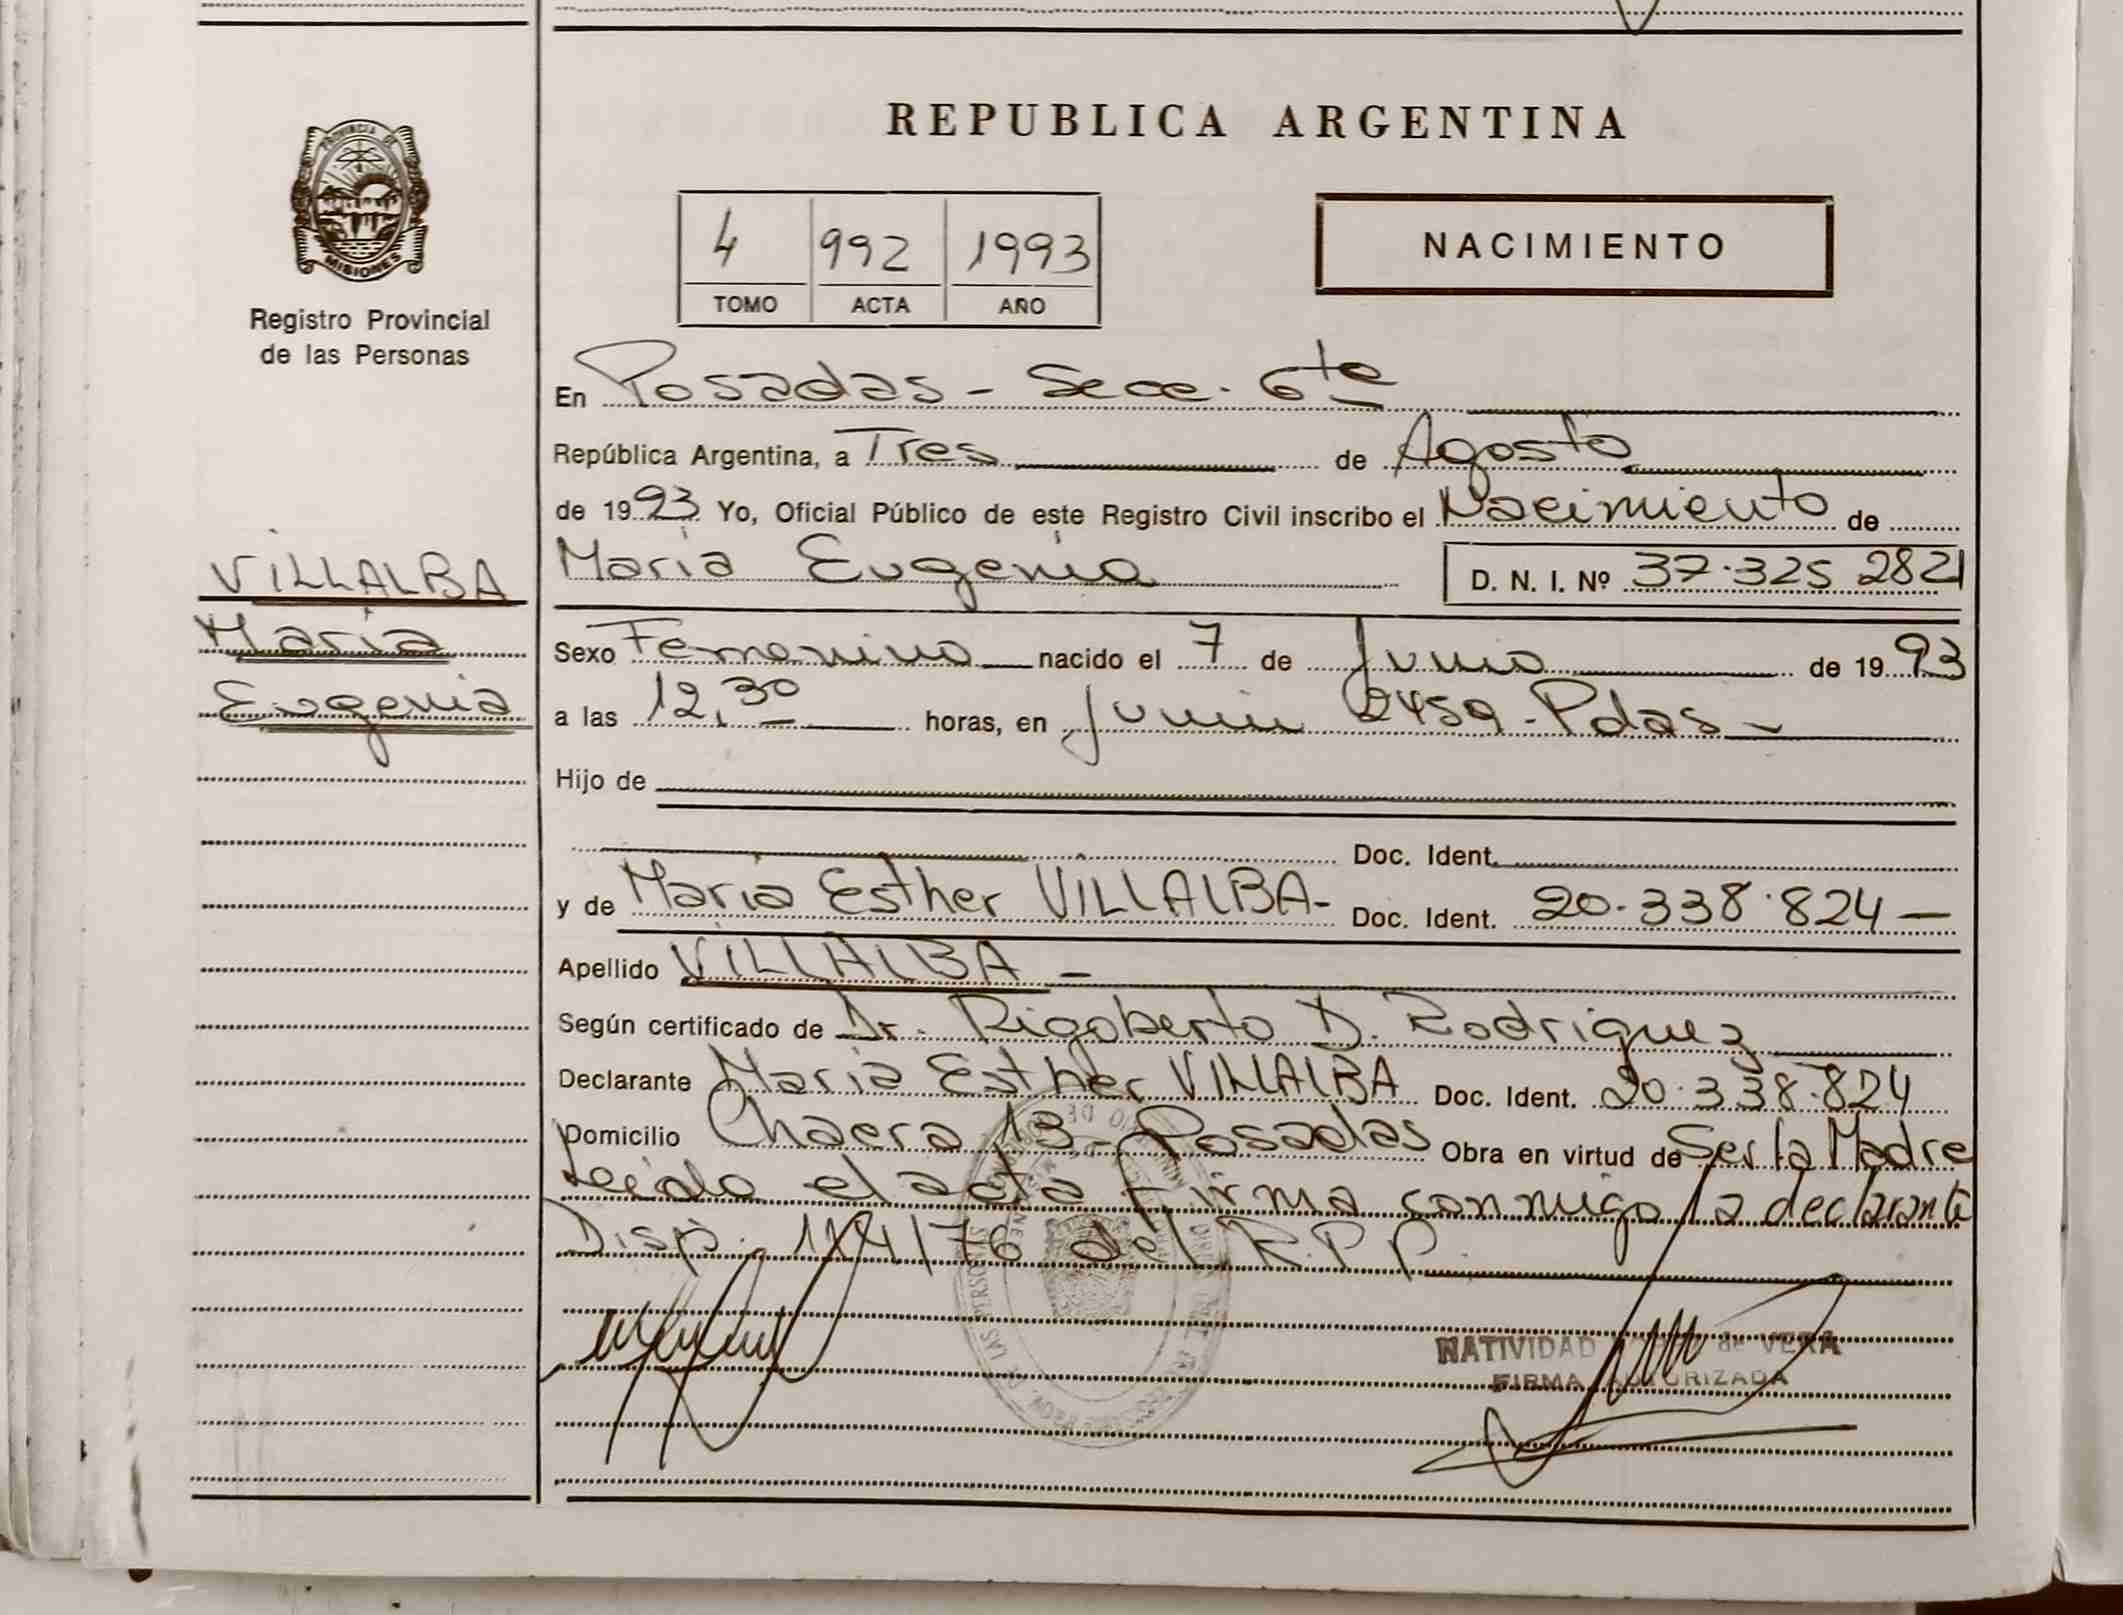 REPUBLICA ARGENTINA
PROVINCIA DE
MISIONES
Registro Provincial
de las Personas
4 992 1993
TOMO ACTA AÑO
NACIMIENTO
En Posadas - Secc. 6ta
República Argentina, a Tres de Agosto
de 1993 Yo, Oficial Público de este Registro Civil inscribo el Nacimiento de
VILLALBA
María
Eugenia
María Eugenia D. N. I. Nº 37.325 282
Sexo Femenino nacido el 7 de Junio de 1993
a las 12,30 horas, en Junin 2459 - Pdas -
Hijo de
Doc. Ident.
y de María Esther VILLALBA - Doc. Ident. 20.338.824 -
Apellido VILLALBA -
Según certificado de Dr. Rigoberto D. Rodriguez
Declarante María Esther VILLALBA Doc. Ident. 20.338.824
Domicilio Chacra 13 - Posadas Obra en virtud de Ser la Madre
Leida el acta firma conmigo la declarante
Disp. 114/76 del R.P.P.
NATIVIDAD de VERA
FIRMA AUTORIZADA